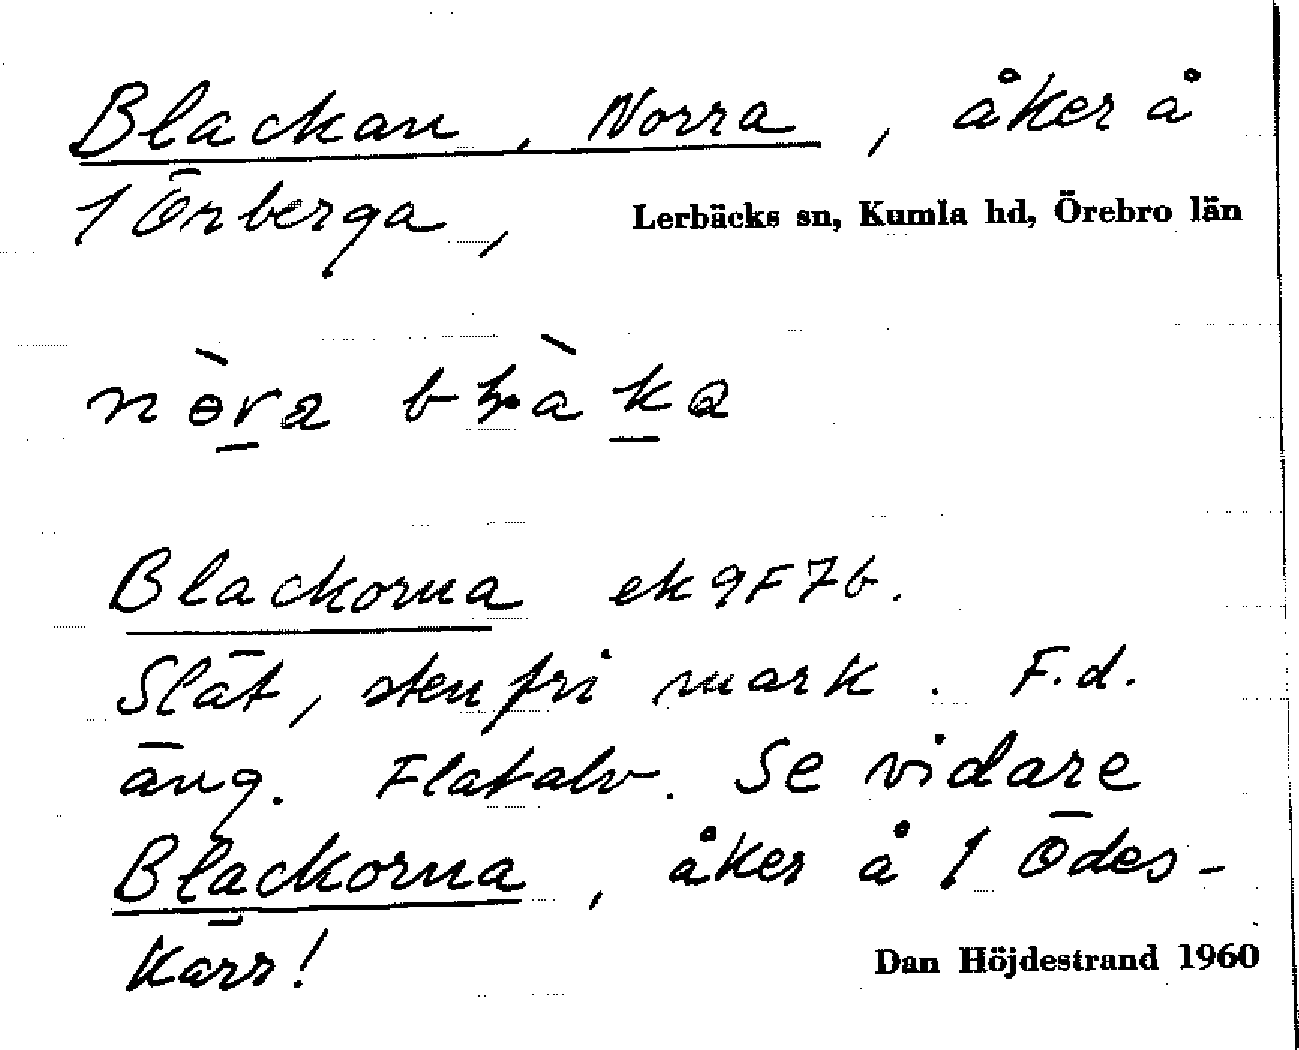 Blackan, Norra, åker å
1 Örberga, Lerbäcks sn, Kumla hd, Örebro län
Blackorna ek 9F7b.
Slät, stenfri mark. F.d.
äng. Flatalv. Se vidare
Blackorna, åker å 1 Ödes-
kärr!
Dan Höjdestrand 1960